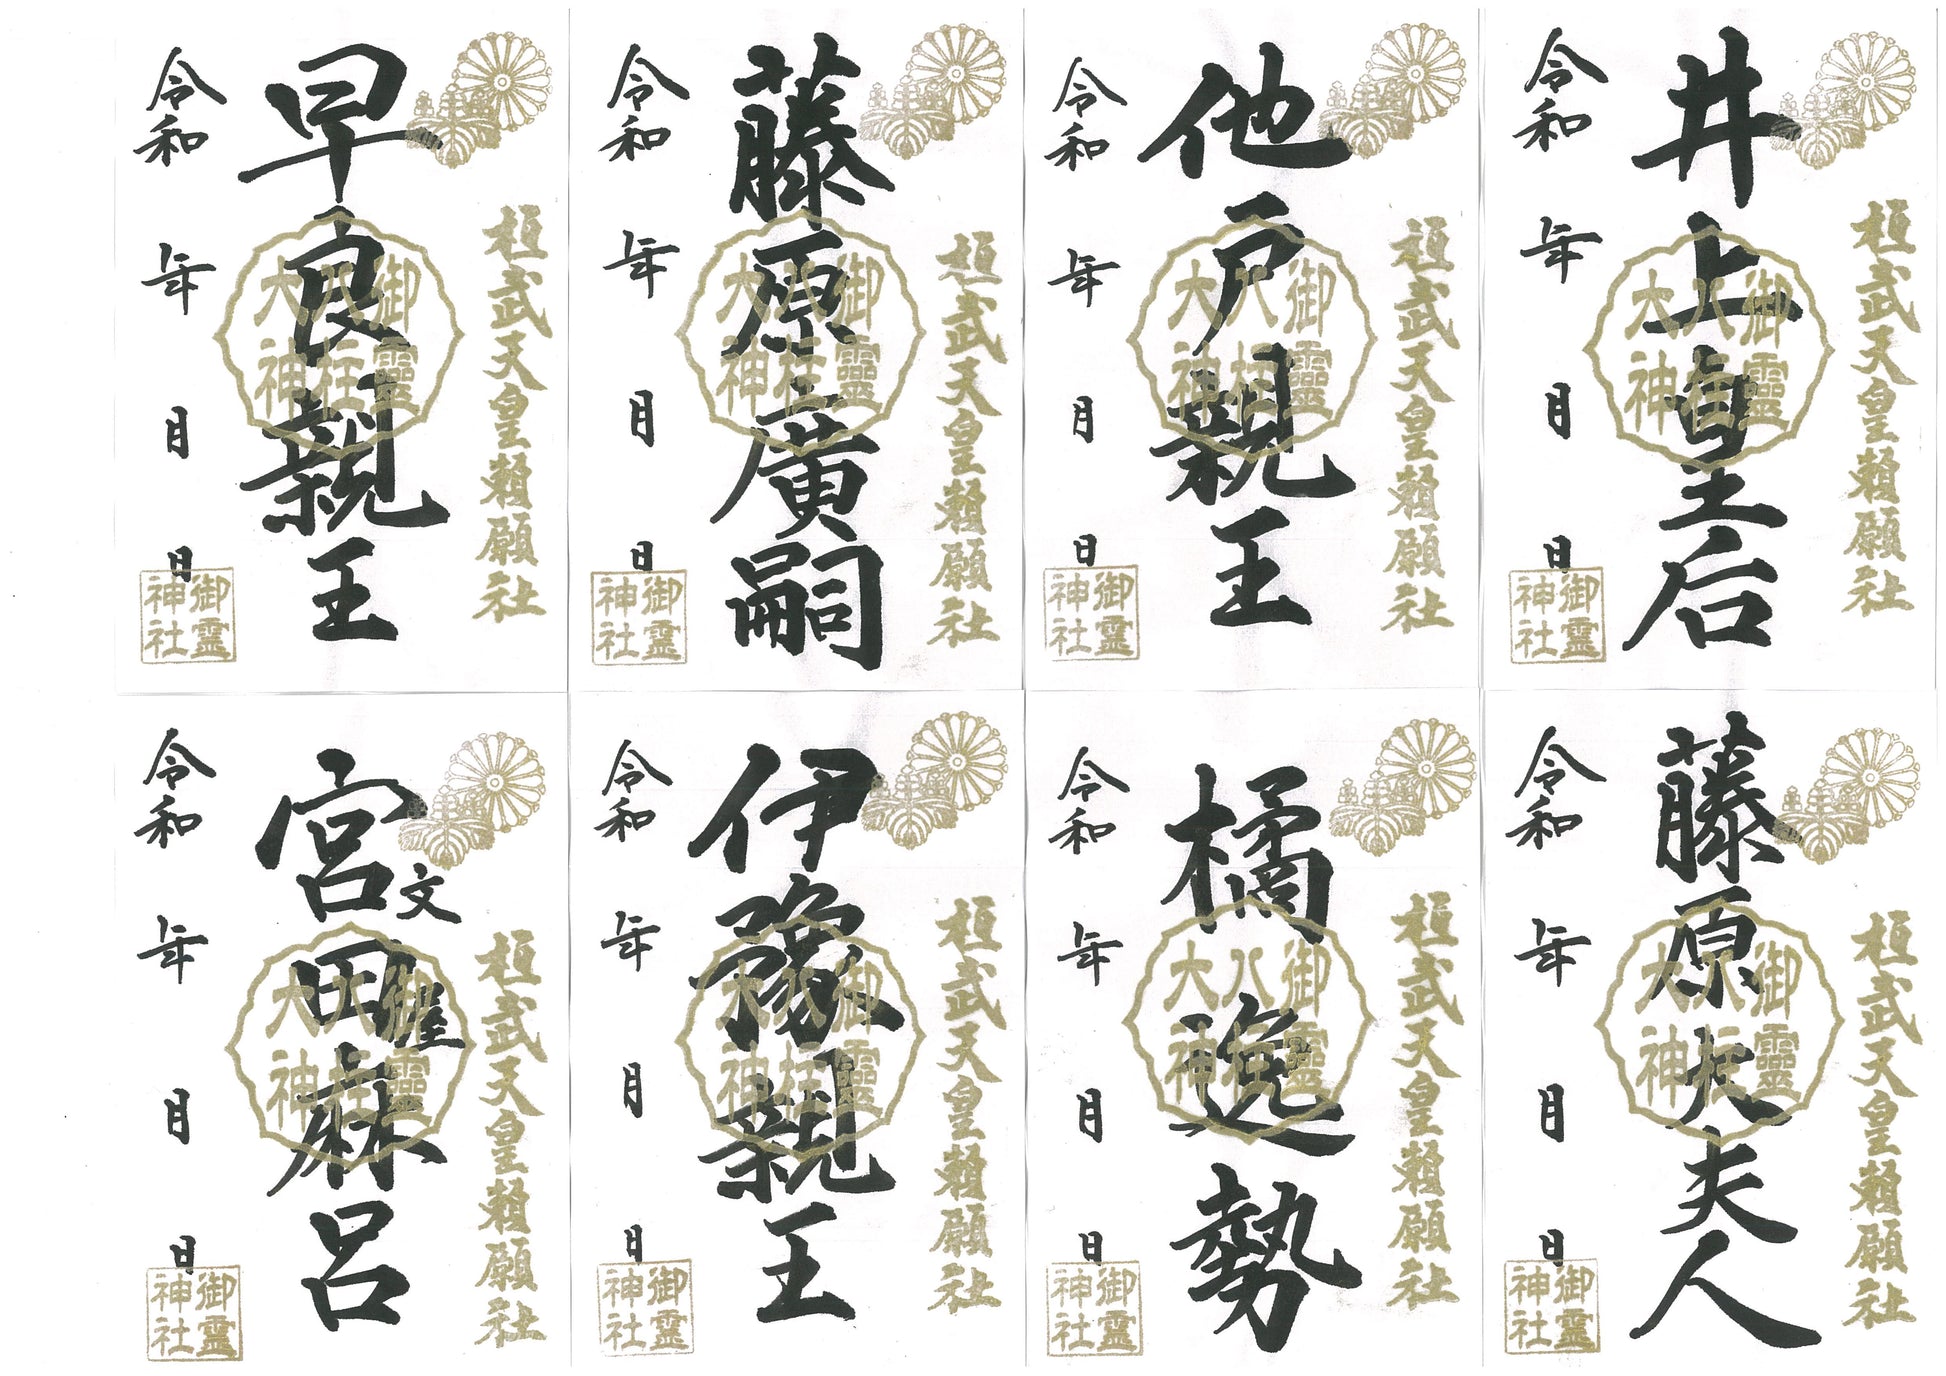 桓武天皇頼願社
井上皇后
御靈
八柱
大神
令和 年 月 日
御霊
神社
桓武天皇頼願社
他戸親王
御靈
八柱
大神
令和 年 月 日
御霊
神社
桓武天皇頼願社
藤原廣嗣
御靈
八柱
大神
令和 年 月 日
御霊
神社
桓武天皇頼願社
早良親王
御靈
八柱
大神
令和 年 月 日
御霊
神社
桓武天皇頼願社
藤原大夫人
御靈
八柱
大神
令和 年 月 日
御霊
神社
桓武天皇頼願社
橘逸勢
御靈
八柱
大神
令和 年 月 日
御霊
神社
桓武天皇頼願社
伊豫親王
御靈
八柱
大神
令和 年 月 日
御霊
神社
桓武天皇頼願社
文屋
宮田麻呂
御靈
八柱
大神
令和 年 月 日
御霊
神社